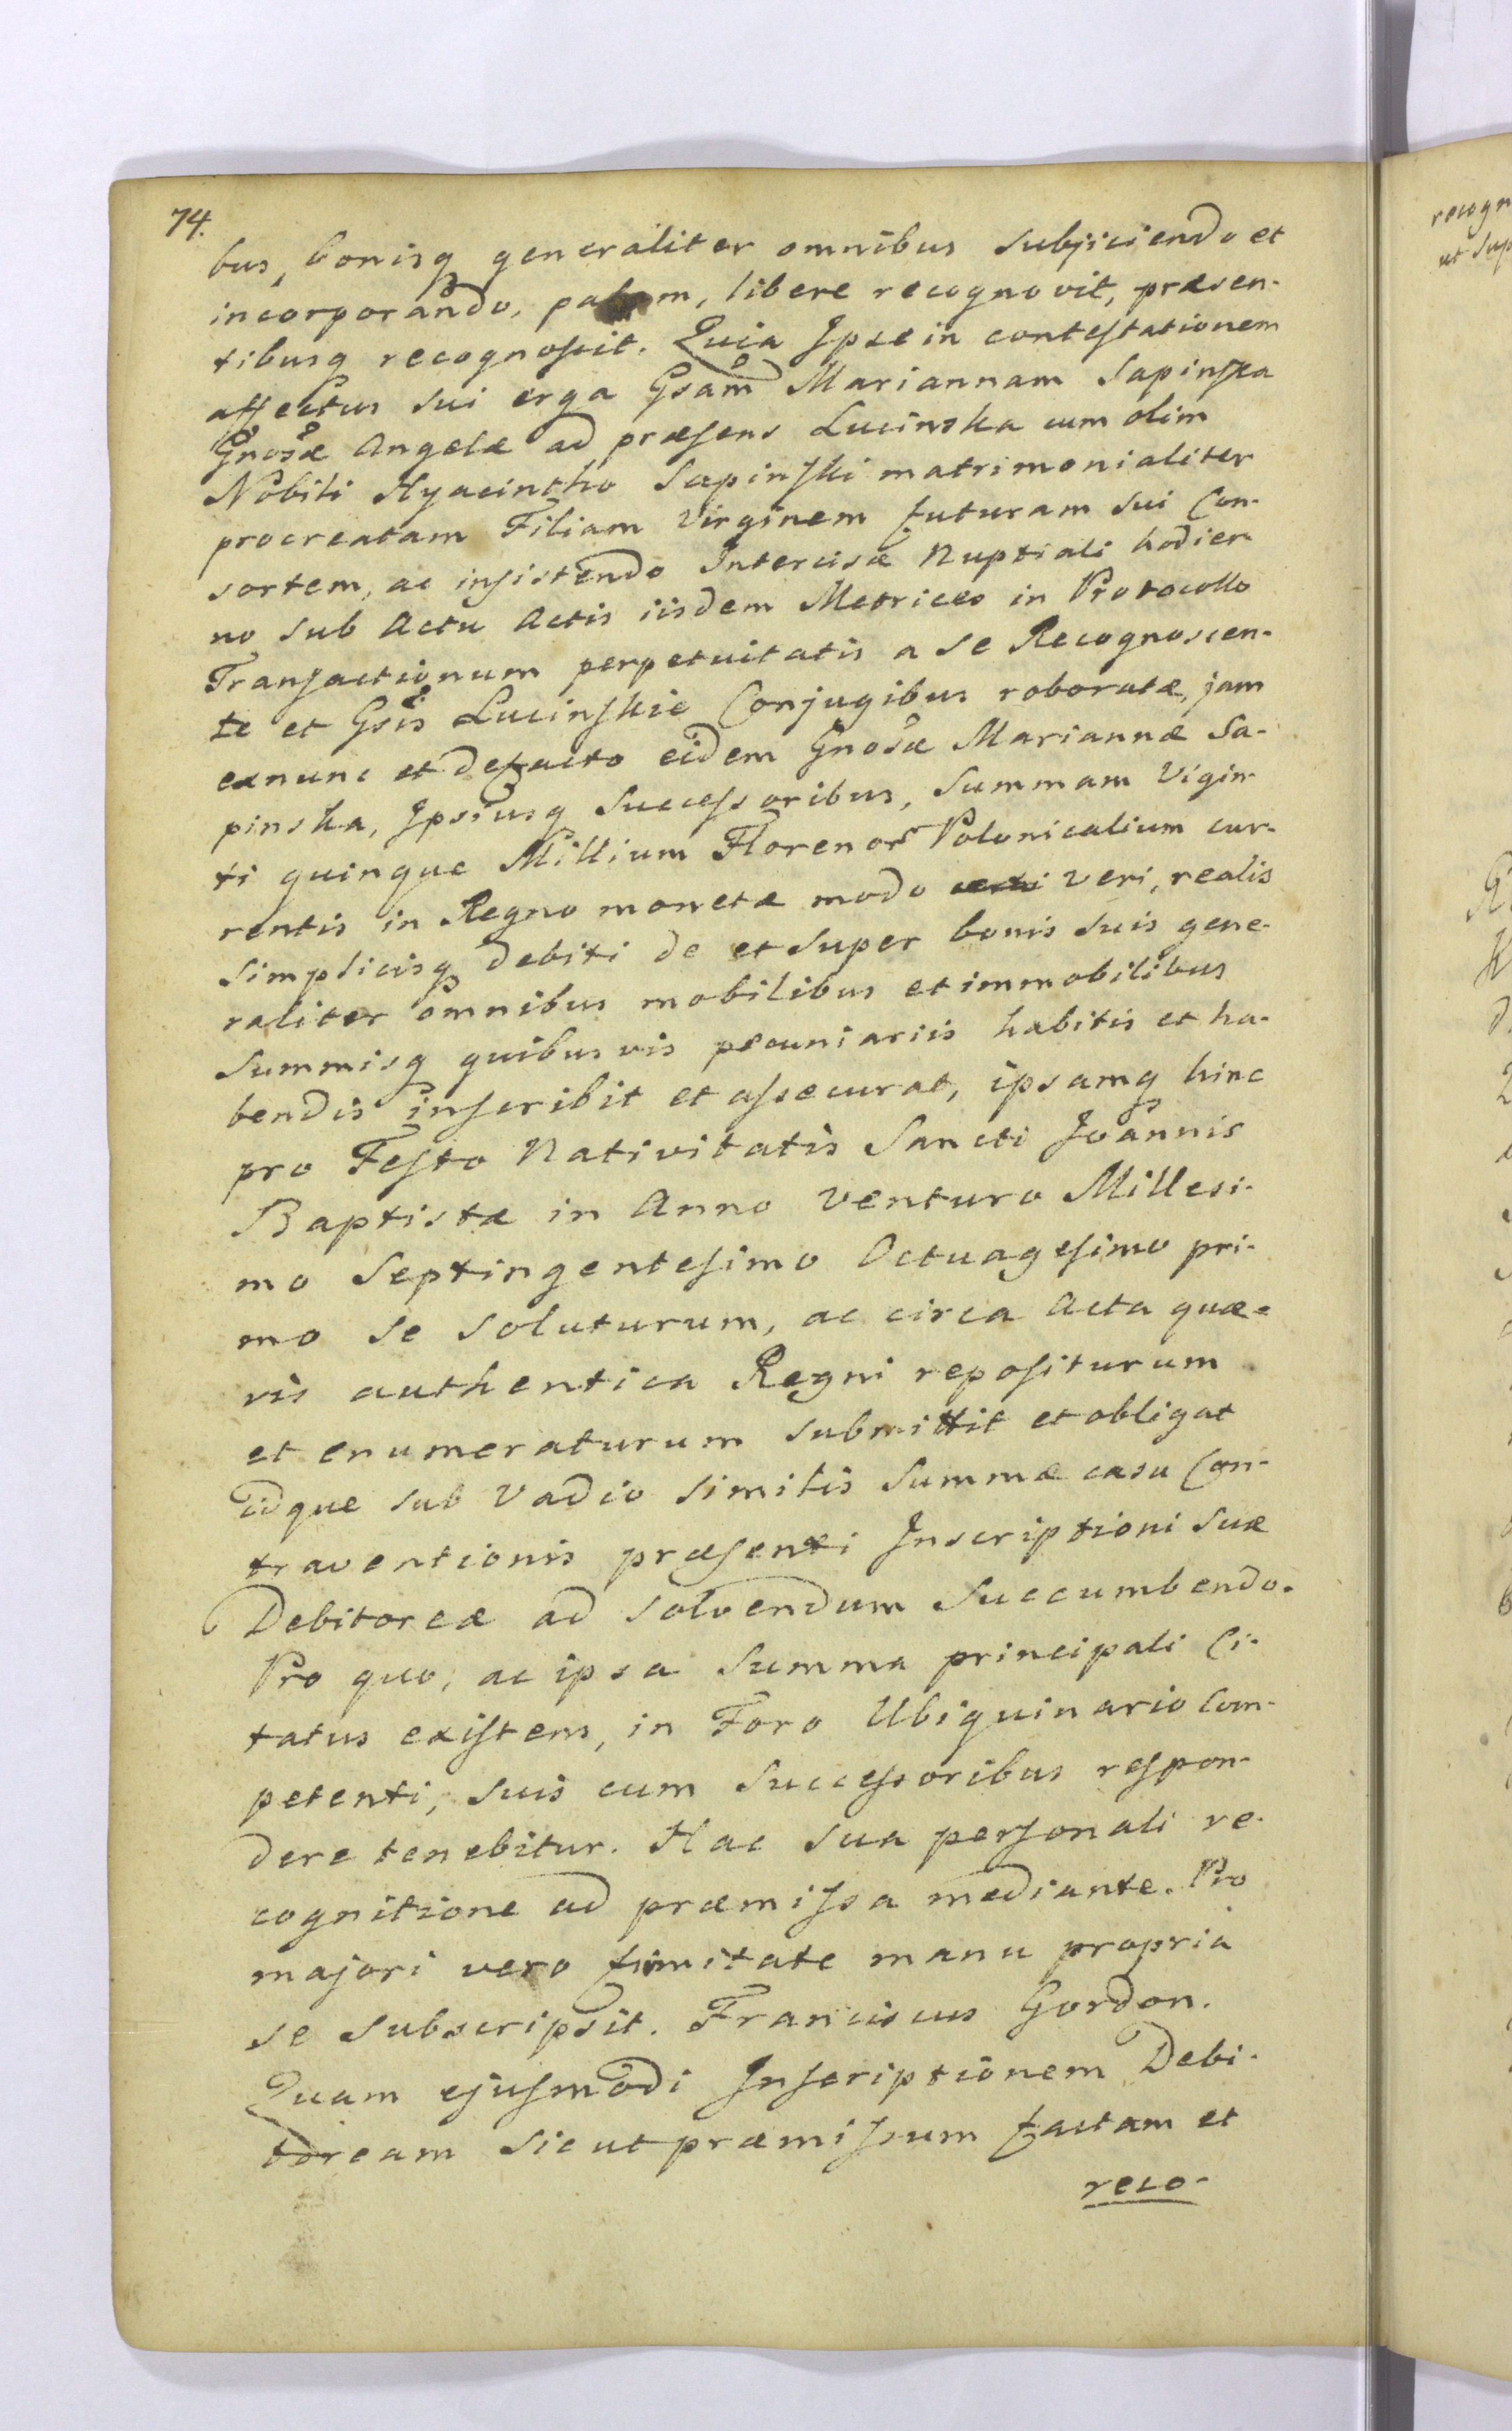 74.
bus, bonisq generaliter omnibus subjiciendo et
incorporando, palam, libere recognovit, præsen-
tibusq recognoscit. Quia Ipse in contestationem
affectus sui erga Gsam Mariannam Sapinska
Gnosæ Angelæ ad præsens Lucinska cum olim
Nobili Hyacintho Sapinski matrimonialiter
procreatam Filiam Virginem futuram sui Con-
sortem, ac insistendo Intercisæ Nuptiali hodier-
no sub Actu Actis iisdem Metrices in Protocollo
Transactionum perpetuitatis a se Recognoscen-
te et Gsis Lucinskie Conjugibus roboratæ, jam
exnunc et defacto eidem Gnosæ Mariannæ Sa-
pinska, Ipsiusq Successoribus, Summam Vigin-
ti quinque Millium Florenor Polonicalium cur-
rentis in Regno monetæ modo veri, realis
simplicisq debiti de et super bonis suis gene-
raliter omnibus mobilibus et immobilibus
Summisq quibusvis pecuniariis habitis et ha-
bendis inscribit et assecurat, ipsamq hinc
pro Festo Nativitatis Sancti Joannis
Baptistæ in Anno venturo Millesi-
mo Septingentesimo Octuagesimo pri-
mo se soluturum, ac circa Acta quæ-
vis authentica Regni repositurum
et enumeraturum submittit et obligat
idque sub Vadio similis Summæ casu Con-
traventionis præsenti Inscriptioni suæ
Debitoreæ ad solvendum succumbendo.
Pro quo, ac ipsa Summa principali Ci-
tatus existens, in Foro Ubiquinario Com-
petenti, suis cum Successoribus respon-
dere tenebitur. Hac sua personali re-
cognitione ad præmissa mediante. Pro
majori vero fimitate manu propria
se subscripsit. Franciscus Gordon.
Quam ejusmodi Inscriptionem Debi-
toream sic ut præmissum factam et
reco-
recogn
ut sup